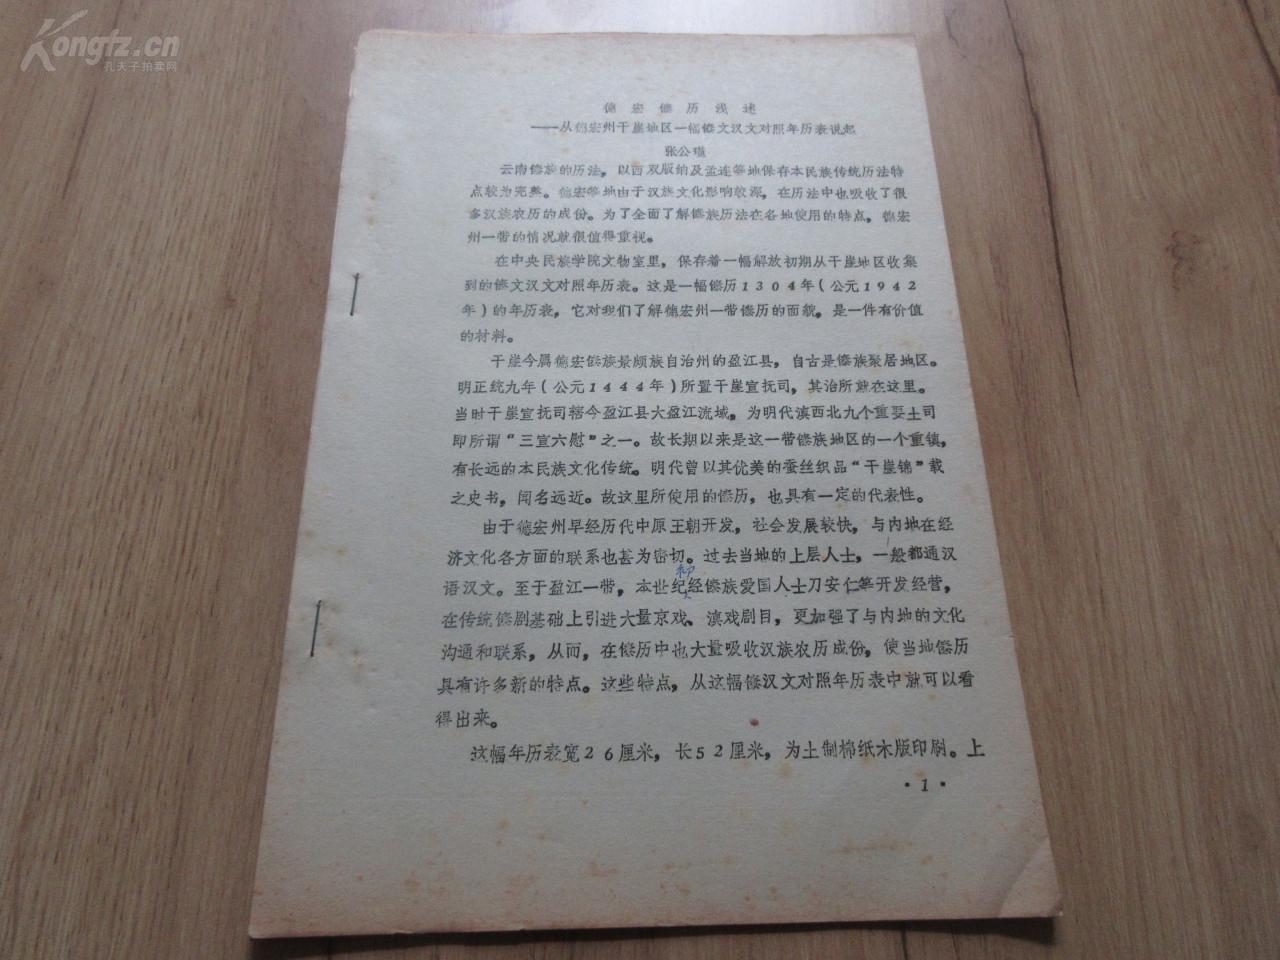 Kongfz.cn
孔夫子拍卖网
德宏傣历浅述
——从德宏州干崖地区一幅傣文汉文对照年历表说起
张公瑾
云南傣族的历法，以西双版纳及孟连等地保存本民族传统历法特
点较为完整。德宏等地由于汉族文化影响较深，在历法中也吸收了很
多汉族农历的成份。为了全面了解傣族历法在各地使用的特点，德宏
州一带的情况就很值得重视。
在中央民族学院文物室里，保存着一幅解放初期从干崖地区收集
到的傣文汉文对照年历表。这是一幅傣历1304年（公元1942
年）的年历表，它对我们了解德宏州一带傣历的面貌，是一件有价值
的材料。
干崖今属德宏傣族景颇族自治州的盈江县，自古是傣族聚居地区。
明正统九年（公元1444年）所置干崖宣抚司，其治所就在这里。
当时干崖宣抚司辖今盈江县大盈江流域，为明代滇西北九个重要土司
即所谓“三宣六慰”之一。故长期以来是这一带傣族地区的一个重镇，
有长远的本民族文化传统。明代曾以其优美的蚕丝织品“干崖锦”载
之史书，闻名远近。故这里所使用的傣历，也具有一定的代表性。
由于德宏州早经历代中原王朝开发，社会发展较快，与内地在经
济文化各方面的联系也甚为密切。过去当地的上层人士，一般都通汉
语汉文。至于盈江一带，本世纪初经傣族爱国人士刀安仁等开发经营，
在传统傣剧基础上引进大量京戏、滇戏剧目，更加强了与内地的文化
沟通和联系，从而，在傣历中也大量吸收汉族农历成份，使当地傣历
具有许多新的特点。这些特点，从这幅傣汉文对照年历表中就可以看
得出来。
这幅年历表宽26厘米，长52厘米，为土制棉纸木版印刷。上
·1·